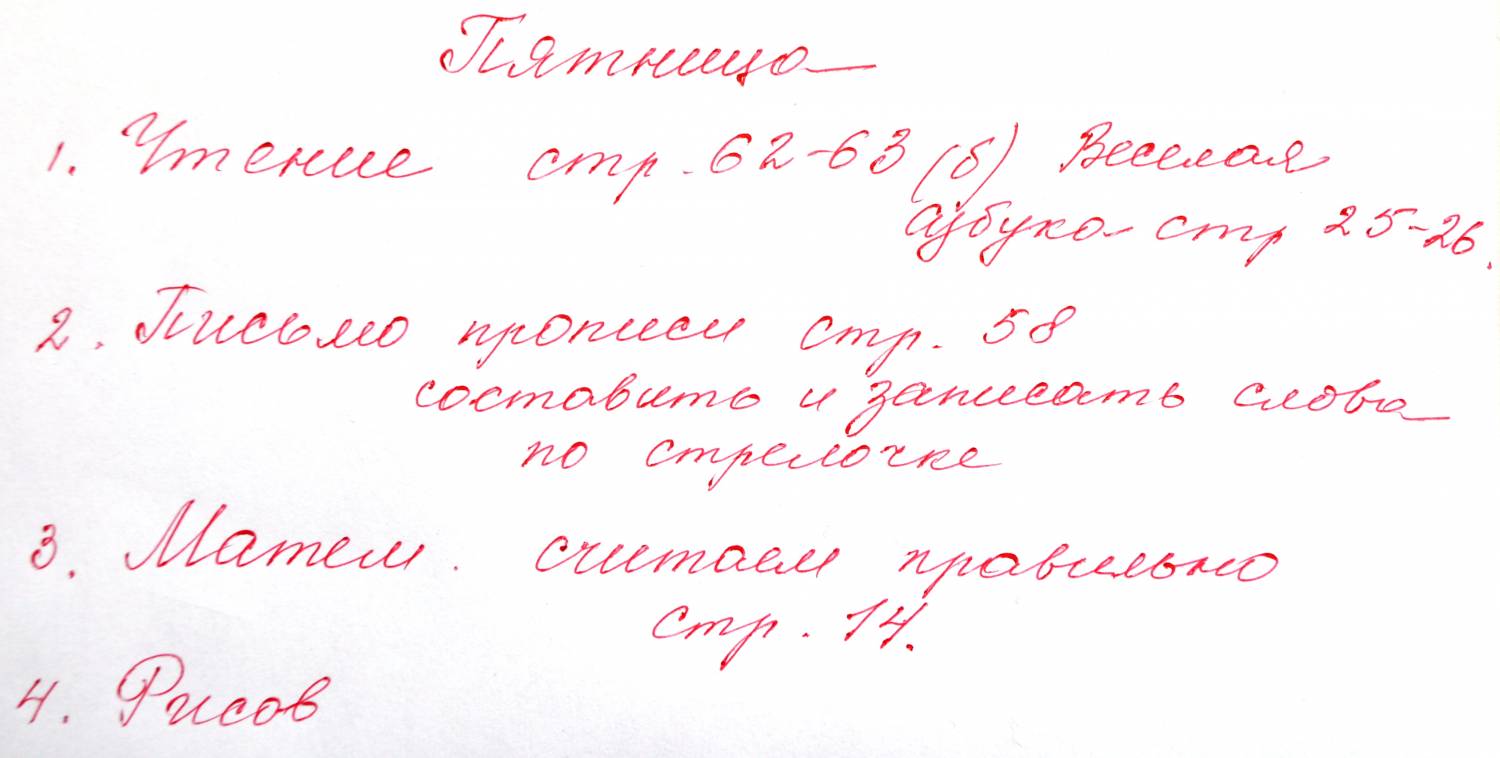 Пятница
1. Чтение стр. 62-63 (б) Веселая
азбука стр 25-26.
2. Письмо прописи стр. 58
составить и записать слова
по стрелочке
3. Матем. считаем правильно
стр. 14.
4. Рисов